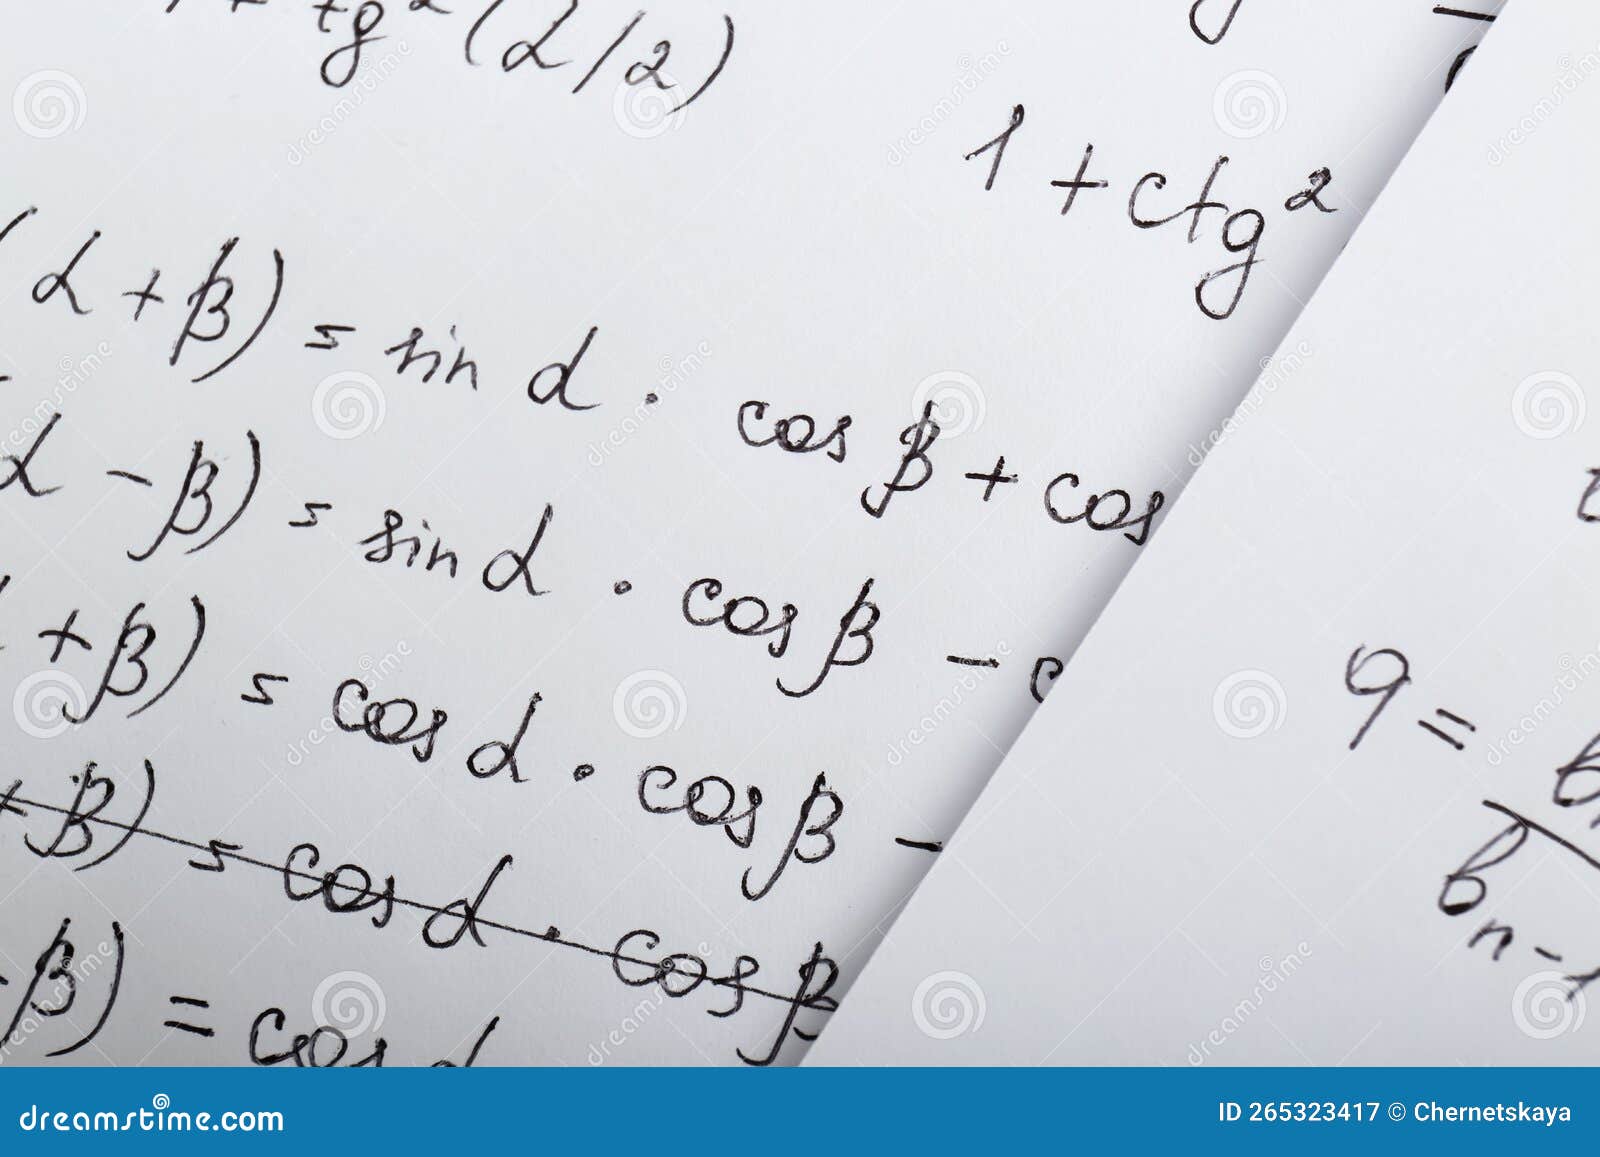 1 + tg² (α/2)
1 + ctg²
(α + β) = sin α · cos β + cos
α - β) = sin α · cos β -
+ β) = cos α · cos β -
+ β) = cos α · cos β
- β) = cos α
q =
b
b n-1
dreamstime.com
ID 265323417 © Chernetskaya